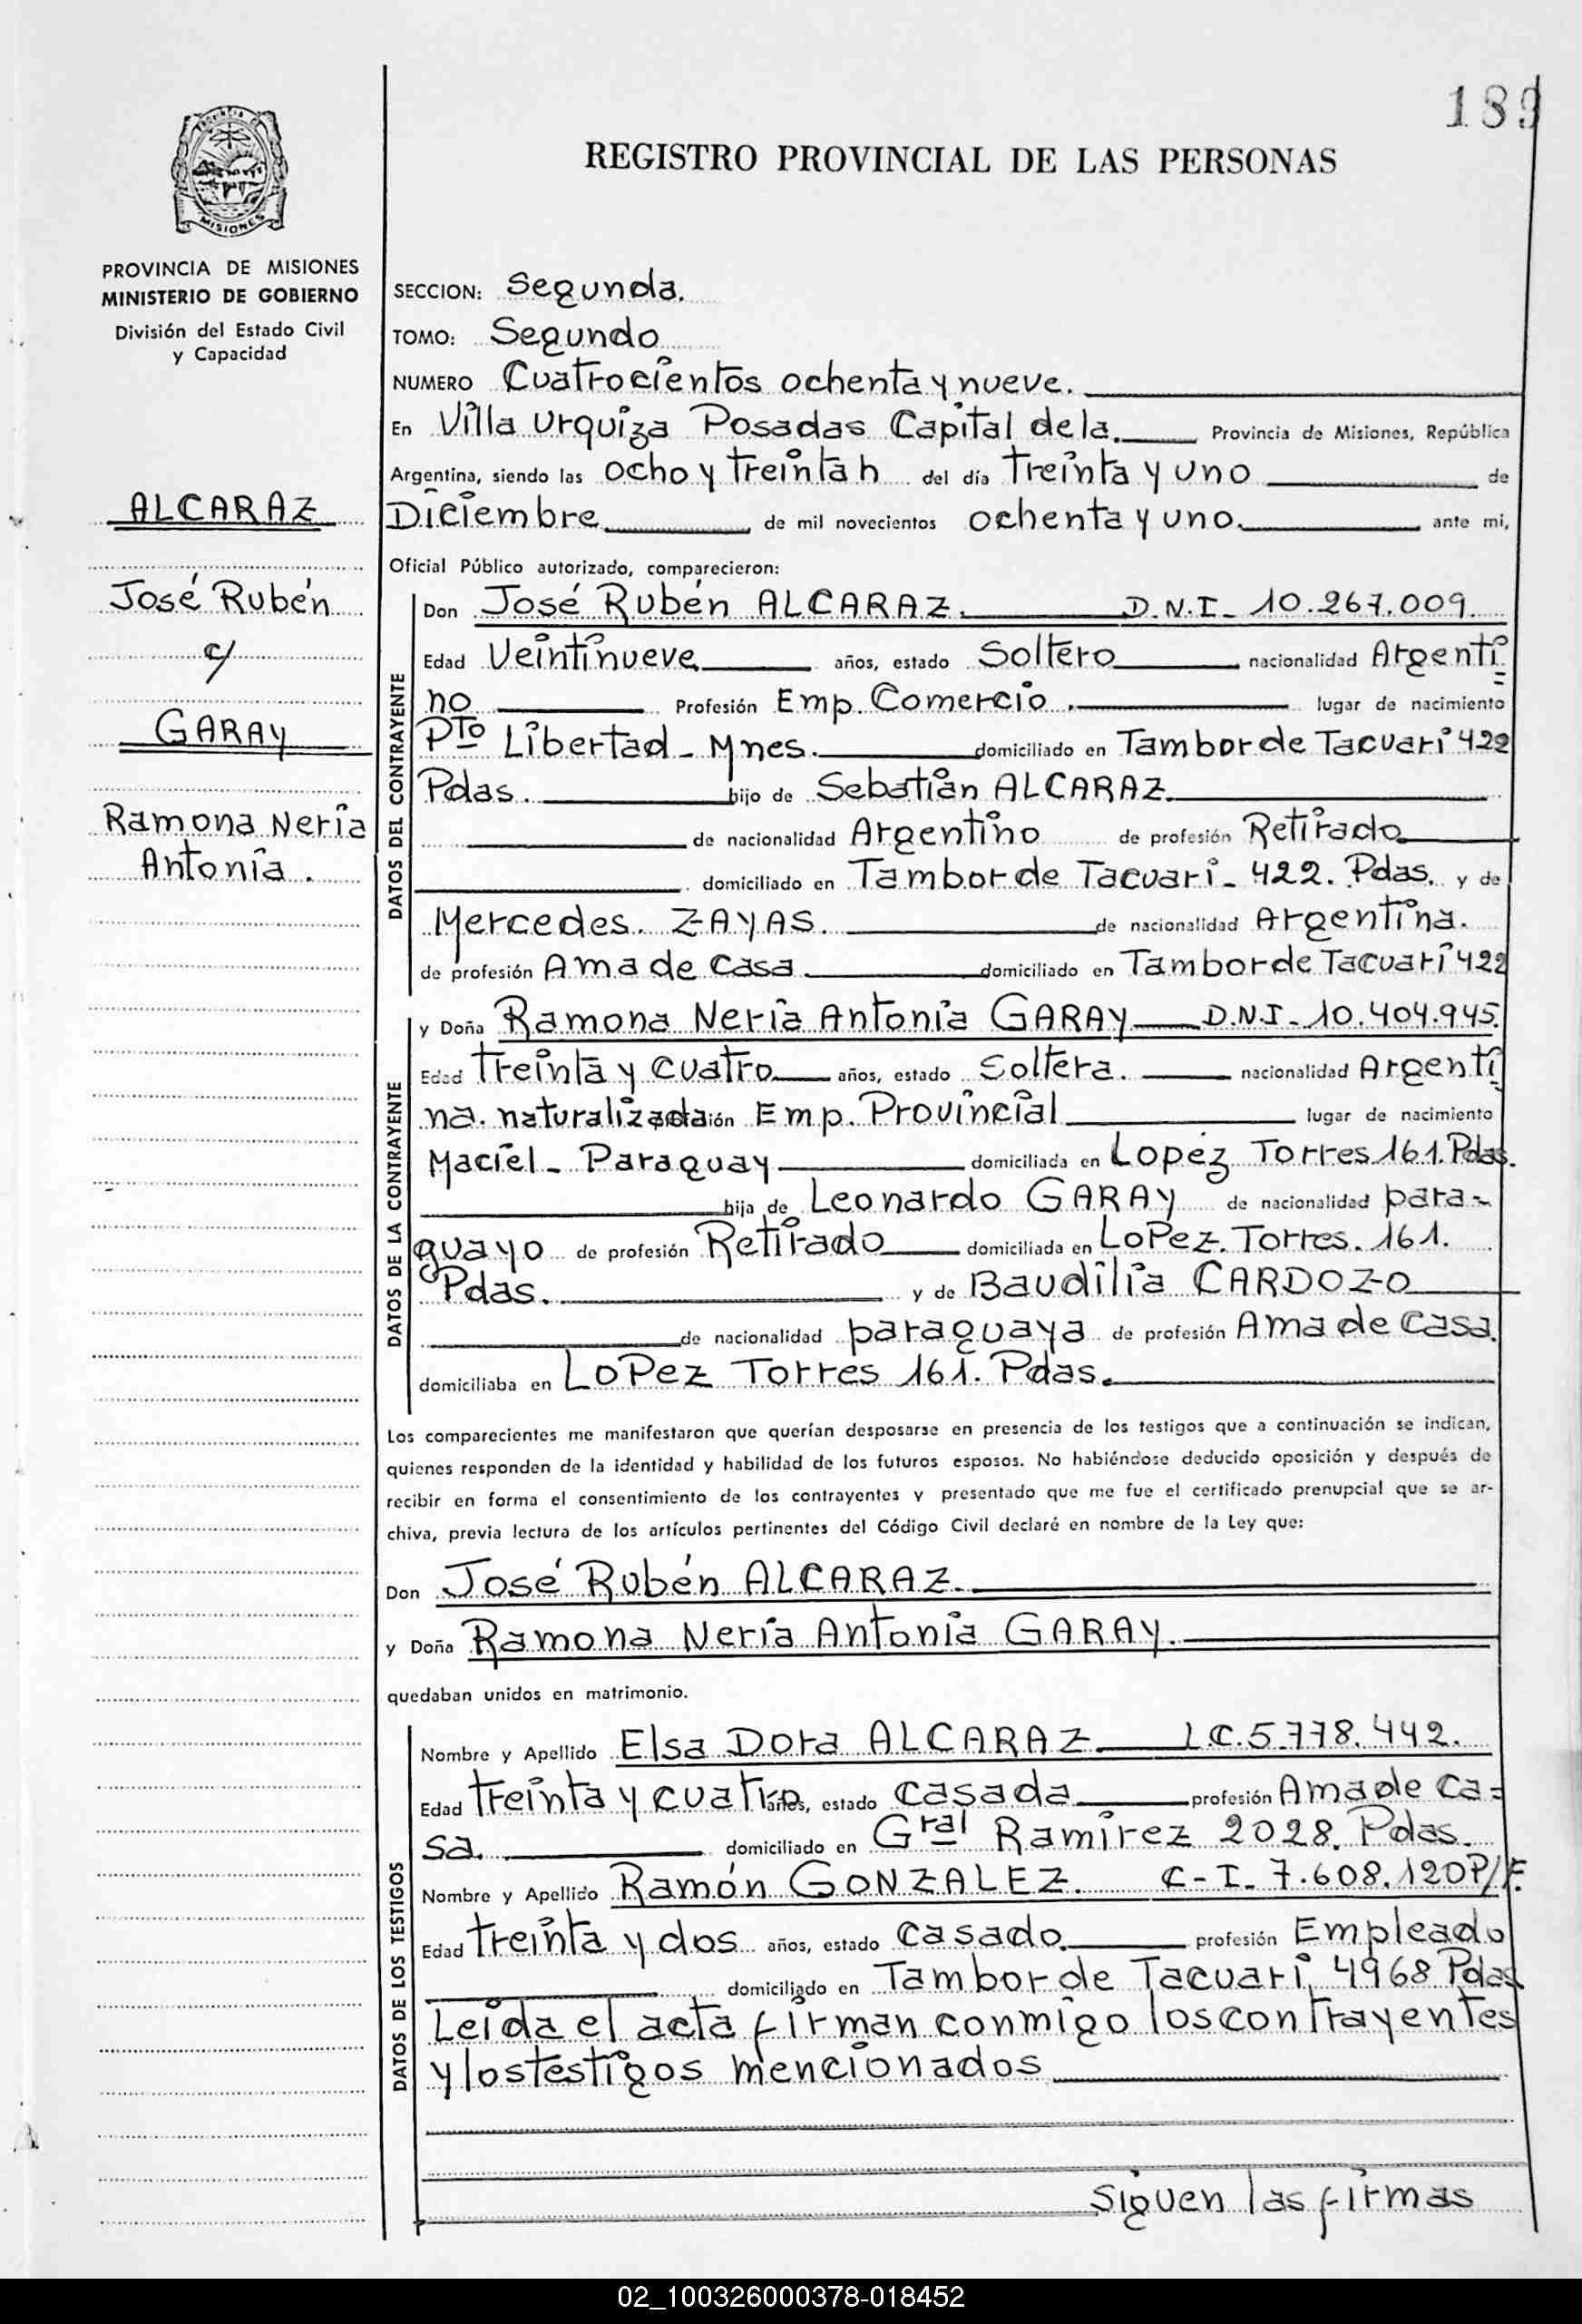 189
REGISTRO PROVINCIAL DE LAS PERSONAS
MISIONES
PROVINCIA DE MISIONES
MINISTERIO DE GOBIERNO
División del Estado Civil
y Capacidad
ALCARAZ
José Rubén
c/
GARAY
Ramona Neria
Antonia.
SECCION: Segunda.
TOMO: Segundo
NUMERO Cuatrocientos ochenta y nueve.
En Villa Urquiza Posadas Capital de la. Provincia de Misiones, República
Argentina, siendo las ocho y treinta h del día treinta y uno de
Diciembre de mil novecientos ochenta y uno. ante mi,
Oficial Público autorizado, comparecieron:
DATOS DEL CONTRAYENTE
Don José Rubén ALCARAZ. D.N.I- 10.267.009.
Edad Veintinueve años, estado Soltero nacionalidad Argenti=
no Profesión Emp. Comercio. lugar de nacimiento
Pto Libertad - Mnes. domiciliado en Tambor de Tacuari 422
Pdas. hijo de Sebatián ALCARAZ.
de nacionalidad Argentino de profesión Retirado
domiciliado en Tambor de Tacuari - 422. Pdas. y de
Mercedes. ZAYAS. de nacionalidad Argentina.
de profesión Ama de Casa domiciliado en Tambor de Tacuari 422
DATOS DE LA CONTRAYENTE
y Doña Ramona Neria Antonia GARAY D.N.I- 10.404.945.
Edad treinta y cuatro años, estado Soltera. nacionalidad Argenti
na. naturalizada Emp. Provincial lugar de nacimiento
Maciel - Paraguay domiciliada en Lopéz Torres 161. Pdas.
hija de Leonardo GARAY de nacionalidad para-
guayo de profesión Retirado domiciliada en LoPez. Torres. 161.
Pdas. y de Baudilia CARDOZO
de nacionalidad paraguaya de profesión Ama de Casa.
domiciliaba en LoPez Torres 161. Pdas.
Los comparecientes me manifestaron que querían desposarse en presencia de los testigos que a continuación se indican,
quienes responden de la identidad y habilidad de los futuros esposos. No habiéndose deducido oposición y después de
recibir en forma el consentimiento de los contrayentes y presentado que me fue el certificado prenupcial que se ar-
chiva, previa lectura de los artículos pertinentes del Código Civil declaré en nombre de la Ley que:
Don José Rubén ALCARAZ.
y Doña Ramona Neria Antonia GARAY.
quedaban unidos en matrimonio.
DATOS DE LOS TESTIGOS
Nombre y Apellido Elsa Dora ALCARAZ L.C. 5.778.442.
Edad treinta y cuatro años, estado casada profesión Ama de Ca=
sa. domiciliado en Gral Ramirez 2028. Pdas.
Nombre y Apellido Ramón GONZALEZ. C-I- 7.608.120P/F.
Edad treinta y dos años, estado casado. profesión Empleado
domiciliado en Tambor de Tacuari, 4968 Pdas
Leida el acta firman conmigo los contrayentes
y los testigos mencionados
Siguen las firmas
02_100326000378-018452